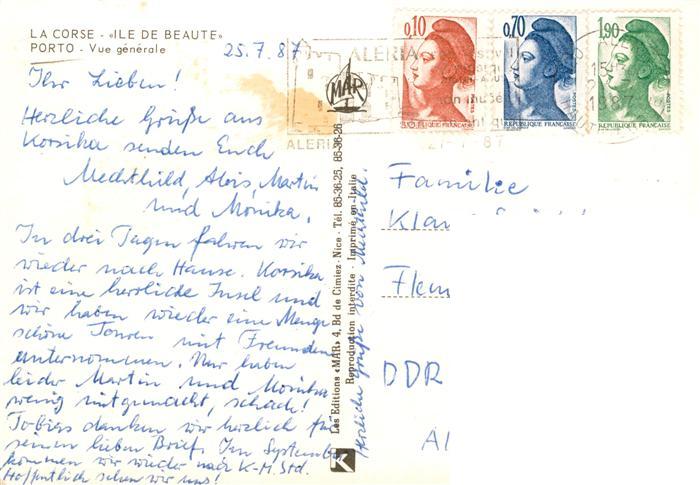 LA CORSE - «ILE DE BEAUTE»
PORTO - Vue générale
25.7.87
Ihr Lieben!
Herzliche Grüße aus
Korsika senden Euch
Mechthild, Alois, Martin
und Monika.
In drei Tagen fahren wir
wieder nach Hause. Korsika
ist eine herrliche Insel und
wir haben wieder eine Menge
schöne Touren mit Freunden
unternommen. Nur haben
leider Martin und Monika
wenig mitgemacht, schade!
Tobias danken wir herzlich für
seinen lieben Brief. Im September
kommen wir wieder nach K-M. Std.
Hoffentlich sehen wir uns!
MAR
Les Editions «MAR» 4, Bd de Cimiez - Nice - Tél. 85-36-25, 85-36-26
Reproduction interdite - Imprimé en Italie
Herzliche Grüße von Mechthild.
K
ALERIA
ALERIA
0,10
RÉPUBLIQUE FRANÇAISE
0,70
POSTES
RÉPUBLIQUE FRANÇAISE
1,90
POSTES
RÉPUBLIQUE FRANÇAISE
Familie
Kla
Flem
DDR
Al